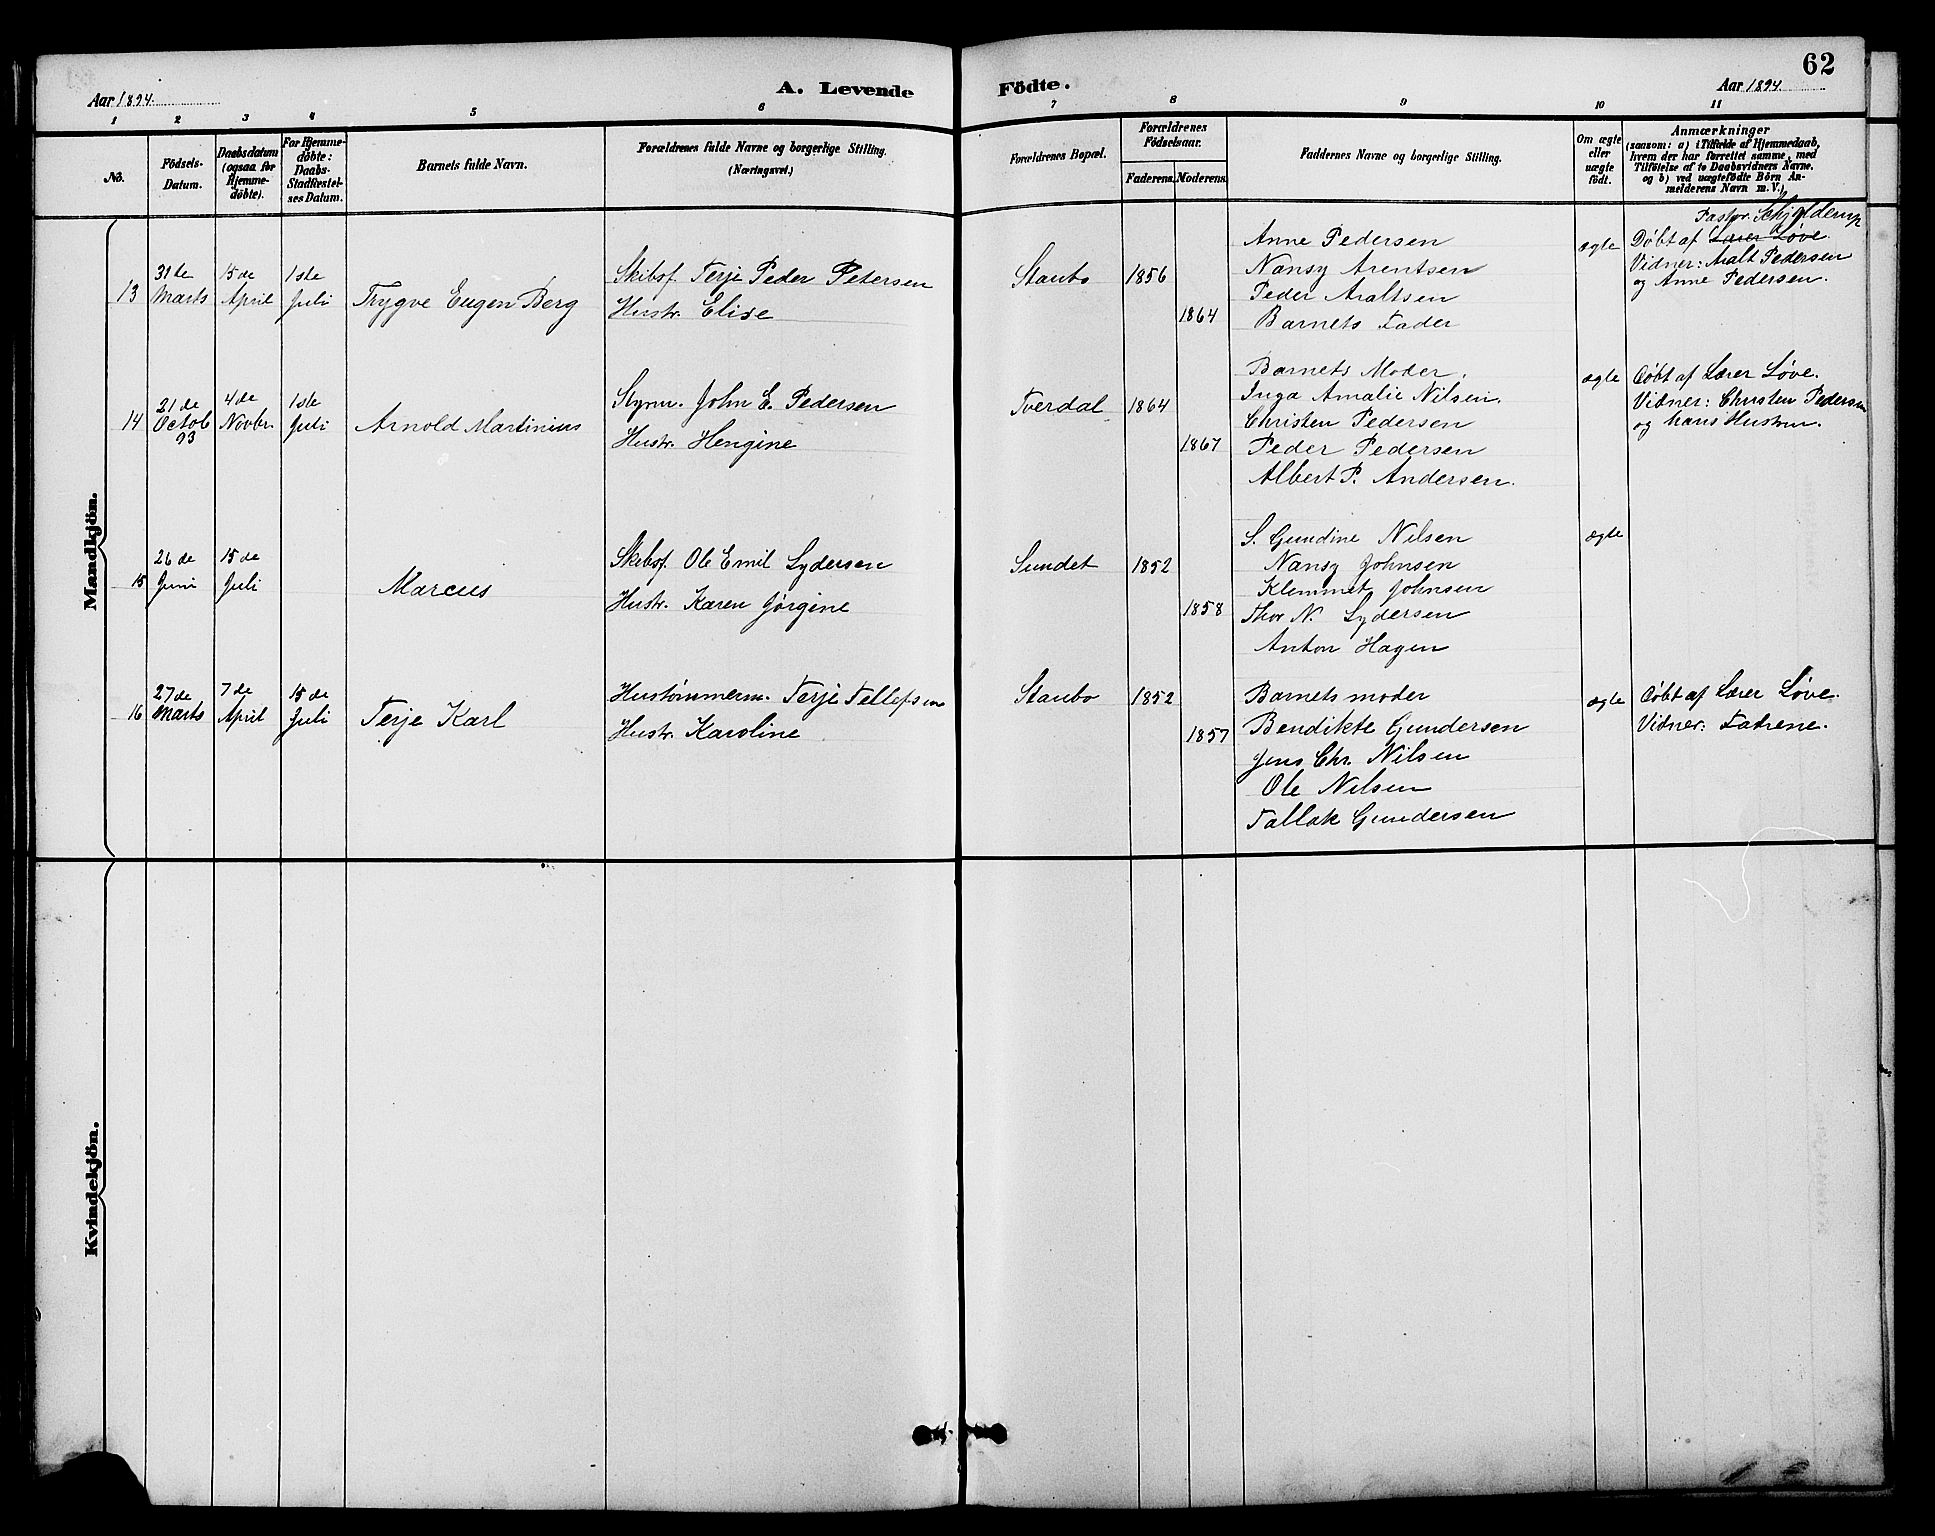 62
Aar 1894.
A. Levende Födte.
Aar 1894.
1 2 3 4 5 6 7 8 9 10 11
No.
Födsels-Datum.
Daabsdatum (ogsaa for Hjemme-döbte).
For Hjemme-döbte: Daabs-Stadfæstel-ses Datum.
Barnets fulde Navn.
Forældrenes fulde Navne og borgerlige Stilling.
(Næringsvei.)
Forældrenes Bopæl.
Forældrenes Födselsaar.
Faderens. Moderens.
Faddernes Navne og borgerlige Stilling.
Om ægte eller uægte födt.
Anmærkninger
(saasom: a) i Tilfælde af Hjemmedaab,
hvem der har forrettet samme, med
Tilföielse af to Daabsvidners Navne,
og b) ved uægtefödte Börn An-
melderens Navn m. V.)
Mandkjön.
13
31te Marts
15de April
1ste Juli
Trygve Eugen Berg
Skibsf. Terje Peder Petersen
Hustr. Elise
Staubo
1856
1864
Anne Pedersen
Nansy Arentsen
Peder Araltsen
Barnets Fader
ægte
Pastor Schjelderup
Døbt af Lærer Løve.
Vidner: Aralt Pedersen
og Anne Pedersen.
14
21de Octob 93
4de Novbr.
1ste Juli
Arnold Martinius
Styrm. John E. Pedersen
Hustr. Hengine
Tverdal
1864
1867
Barnets Moder.
Inga Amalie Nilsen.
Christen Pedersen
Peder Pedersen
Albert P. Andersen.
ægte
Døbt af Lærer Løve.
Vidner: Christen Pedersen
og hans Hustru.
15
26de Juni
15de Juli
Marcus
Skibsf. Ole Emil Sydersen
Hustr. Karen Jørgine
Sundet
1852
1858
S. Gundine Nilsen
Nansy Johnsen
Klemmet Johnsen
Thor N. Lydersen
Anton Hagen
ægte
16
27de Marts
7de April
15de Juli
Terje Karl
Hustømmerm. Terje Tellefsen
Hustr. Karoline
Staubo
1852
1857
Barnets moder
Bendikte Gundersen
Jens Chr. Nilsen
Ole Nilsen
Tallak Gundersen
ægte
Døbt af Lærer Løve.
Vidner: Fadrene.
Kvindekjön.